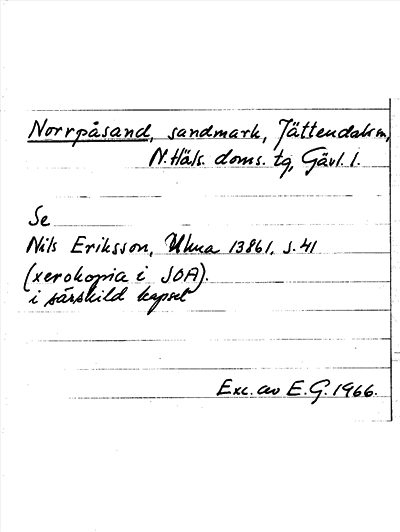 Norrpåsand, sandmark, Jättendals sn,
N. Häls. doms. tg, Gävl. l.
Se
Nils Eriksson, Ulma 13861, s. 41
(xerokopia i SOA).
i särskild kapsel
Exc. av E. G. 1966.